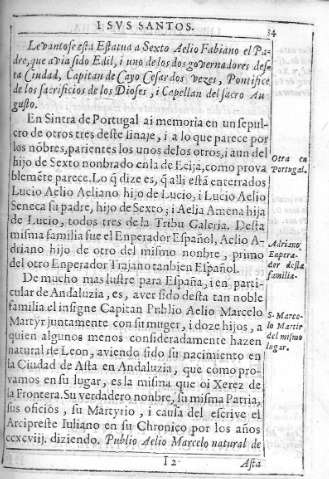 I SVS SANTOS.
34
Levantose esta Estatua a Sexto Aelio Fabiano el Pa-
dre, que avia sido Edil, i uno de los dos governadores des-
ta Ciudad, Capitan de Cayo Cesar dos vezes, Pontifice
de los sacrificios de los Dioses, i Capellan del sacro Au
gusto.
En Sintra de Portugal ai memoria en un sepul-
cro de otros tres deste linaje, i a lo que parece por
los nõbres, parientes los unos de los otros, i aun del
hijo de Sexto nonbrado en la de Ecija, como prova
blemẽte parece. Lo q̃ dize es, q̃ alli està enterrados
Lucio Aelio Aeliano hijo de Lucio, i Lucio Aelio
Seneca su padre, hijo de Sexto; i Aelia Amena hija
de Lucio, todos tres de la Tribu Galeria. Desta
misma familia fue el Enperador Español, Aelio A-
driano hijo de otro del mismo nonbre, primo
del otro Enperador Trajano tanbien Español.
De mucho mas lustre para España, i en parti-
cular de Andaluzia, es, aver sido desta tan noble
familia el insigne Capitan Publio Aelio Marcelo
Martyr juntamente con su muger, i doze hijos, a
quien algunos menos consideradamente hazen
natural de Leon, aviendo sido su nacimiento en
la Ciudad de Asta en Andaluzia, que como pro-
vamos en su lugar, es la misma que oi Xerez de
la Frontera. Su verdadero nonbre, su misma Patria,
sus oficios, su Martyrio, i causa del escrive el
Arcipreste Iuliano en su Chronico por los años
ccxcviij. diziendo. Publio Aelio Marcelo natural de
I 2
Asta
Otra en
Portugal.
Adriano,
Enpera-
dor desta
familia.
S. Marce-
lo Martir
del mismo
lugar.